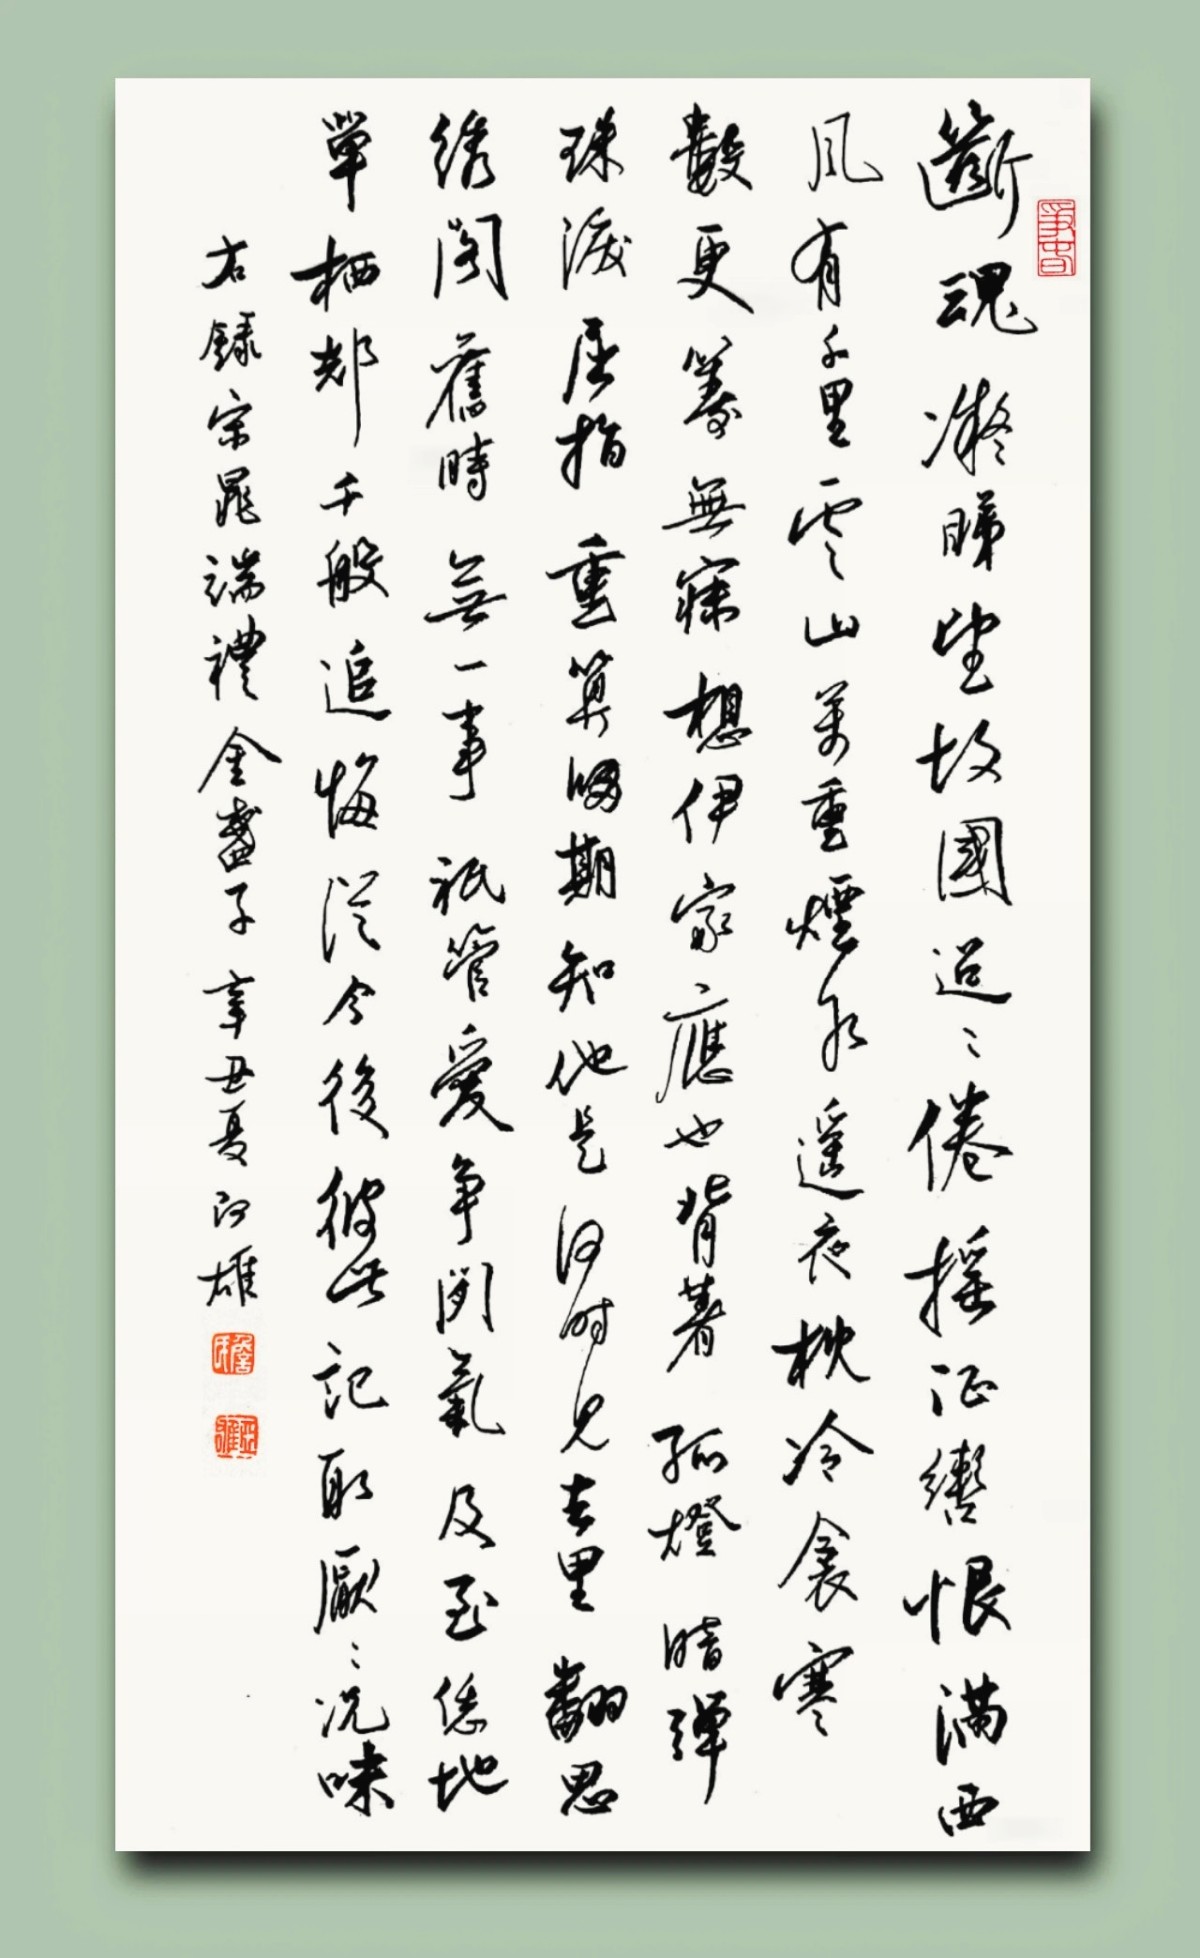 斷魂凝睇望故國迢〻倦搖征轡恨滿西
風有千里雲山萬重煙水遥夜枕冷衾寒
數更籌無寐想伊家應也背著孤燈暗彈
珠淚屈指重算歸期知他是何時見去里翻思
绣閣舊時無一事衹管愛争閑氣及至恁地
單栖郄千般追悔從今後彼此記取厭〻况味
右録宋晁端禮金盞子辛丑夏 雄